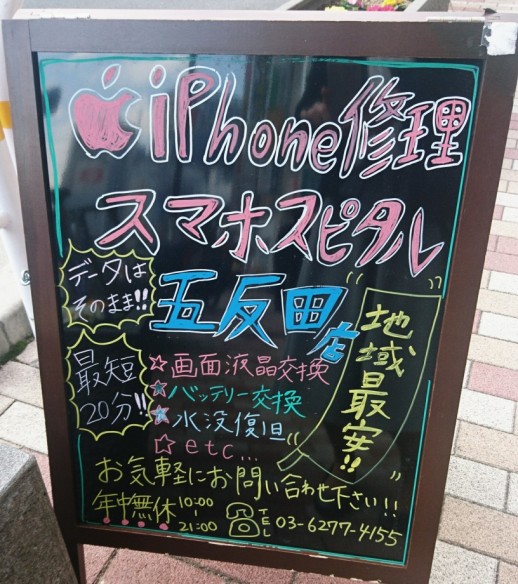 iPhone修理
スマホスピタル
五反田店
データは
そのまま!!
地域最安!!
最短
20分!!
☆画面液晶交換
☆バッテリー交換
☆水没復旦
☆etc...
お気軽にお問い合わせ下さい!!
年中無休 10:00
21:00
TEL 03-6277-4155